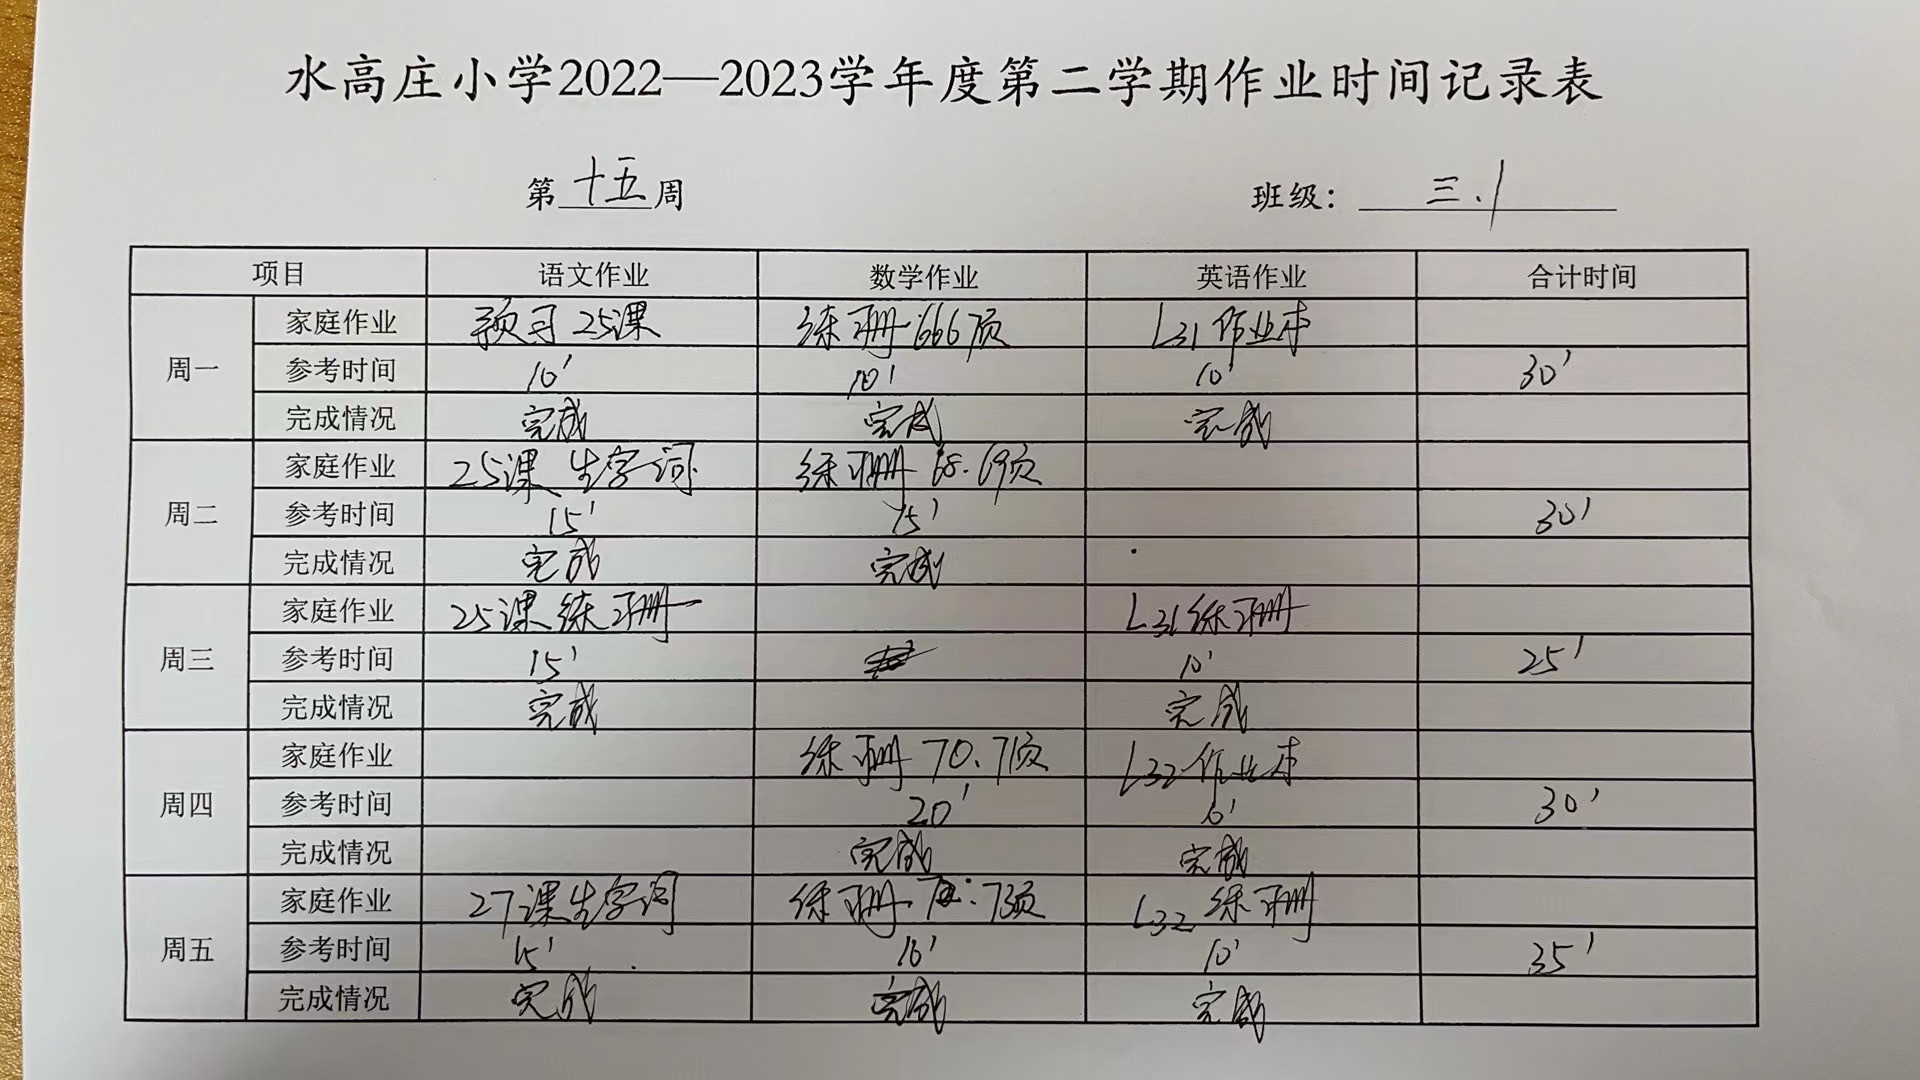 水高庄小学2022—2023学年度第二学期作业时间记录表
第 十五 周 班级： 三.1
项目 语文作业 数学作业 英语作业 合计时间
周一
家庭作业 预习25课 练习册 666页 L31作业本
参考时间 10' 10' 10' 30'
完成情况 完成 完成 完成
周二
家庭作业 25课 生字词 练习册 68.69页
参考时间 15' 15' 30'
完成情况 完成 完成
周三
家庭作业 25课练习册 L31练习册
参考时间 15' 10' 25'
完成情况 完成 完成
周四
家庭作业 练习册 70.71页 L32作业本
参考时间 20' 10' 30'
完成情况 完成 完成
周五
家庭作业 27课生字词 练习册 73页 L32 练习册
参考时间 15' 10' 10' 35'
完成情况 完成 完成 完成